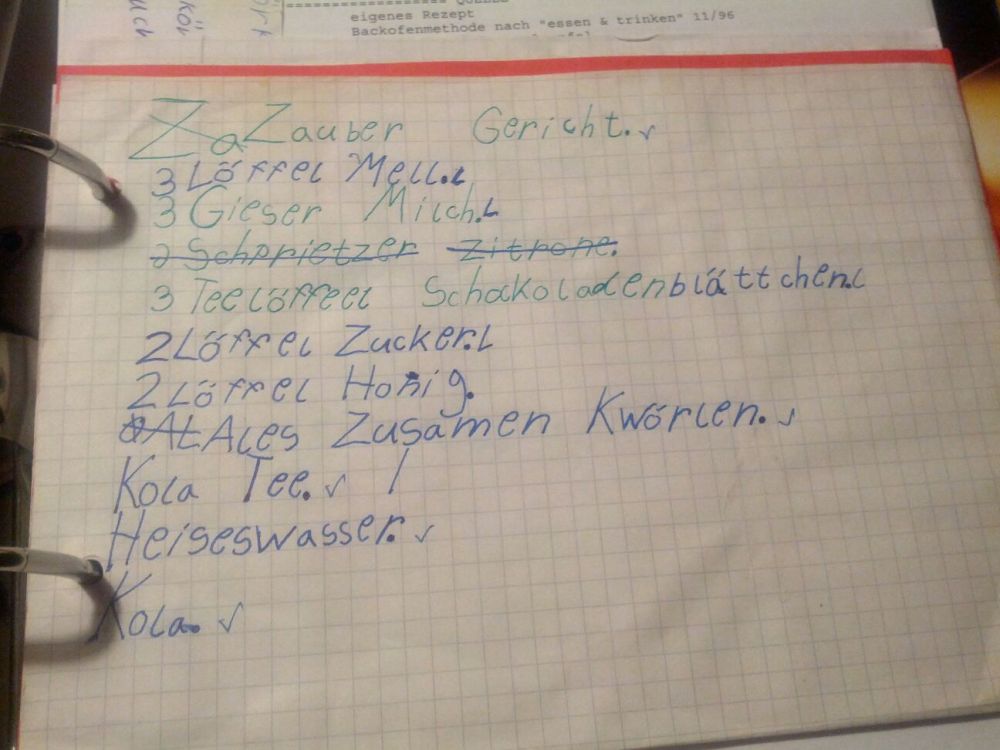 eigenes Rezept
Backofenmethode nach "essen & trinken" 11/96
Za Zauber Gericht.
3 Löffel Mell.
3 Gieser Milch.
2 Schprietzer Zitrone.
3 Teelöffeel Schokoladenblättchen.
2 Löffel Zucker.
2 Löffel Honig.
Ales Zusamen Kwörlen.
Kola Tee. /
Heiseswasser.
Kola.